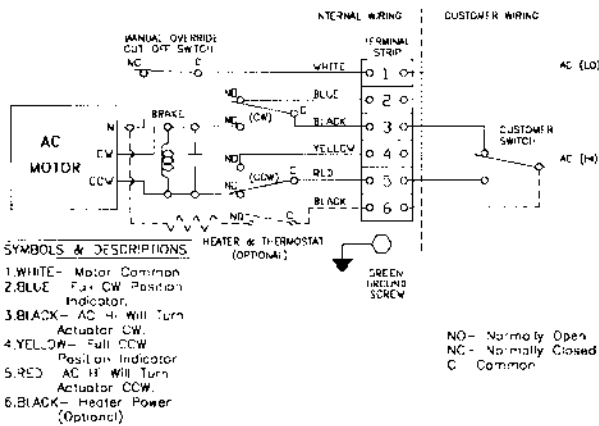 INTERNAL WIRING
CUSTOMER WIRING
MANUAL OVERRIDE
CUT OFF SWITCH
NC C
TERMINAL
STRIP
WHITE
1
AC (LO)
BLUE
2
NO
C
(CW)
BLACK
3
BRAKE
N
AC
MOTOR
CW
CCW
CUSTOMER
SWITCH
YELLOW
4
NO
AC (HI)
(CCW)
C
RED
5
BLACK
6
C
HEATER & THERMOSTAT
(OPTIONAL)
GREEN
GROUND
SCREW
SYMBOLS & DESCRIPTIONS
1.WHITE- Motor Common
2.BLUE Full CW Position
Indicator.
3.BLACK- AC Hi Will Turn
Actuator CW.
4.YELLOW- Full CCW
Position Indicator
5.RED AC Hi Will Turn
Actuator CCW.
6.BLACK- Heater Power
(Optional)
NO- Normally Open
NC- Normally Closed
C Common